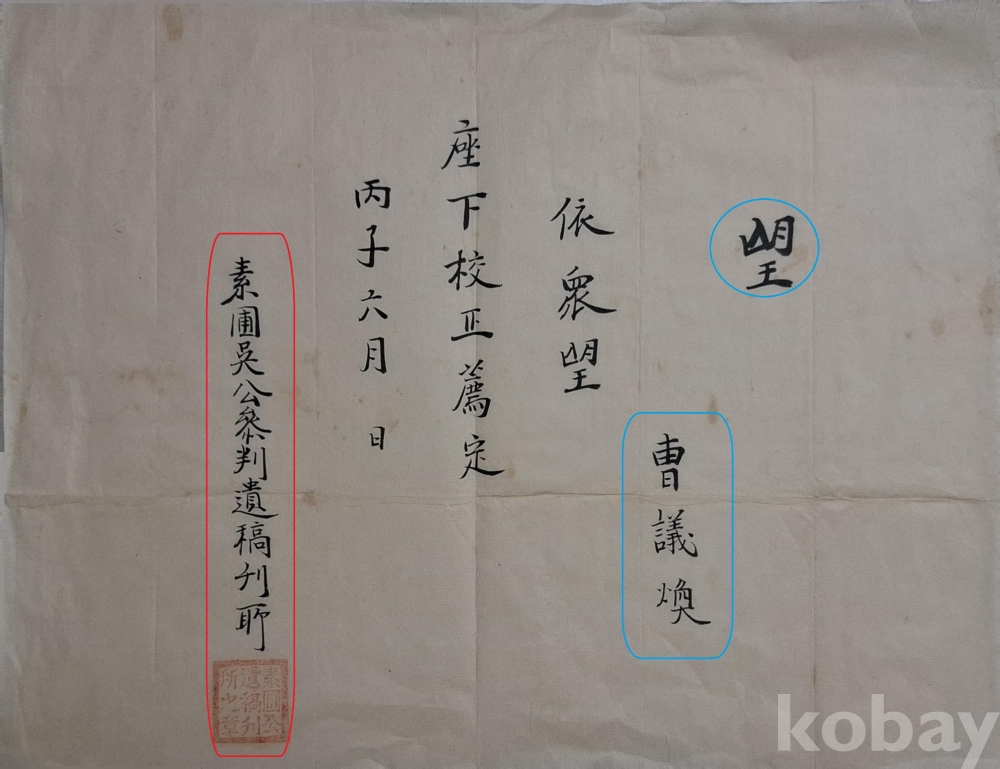 望
曺議煥
依衆望
座下校正薦定
丙子六月 日
素圃吳公參判遺稿刊所
素圃公
遺稿刊
所之章
kobay